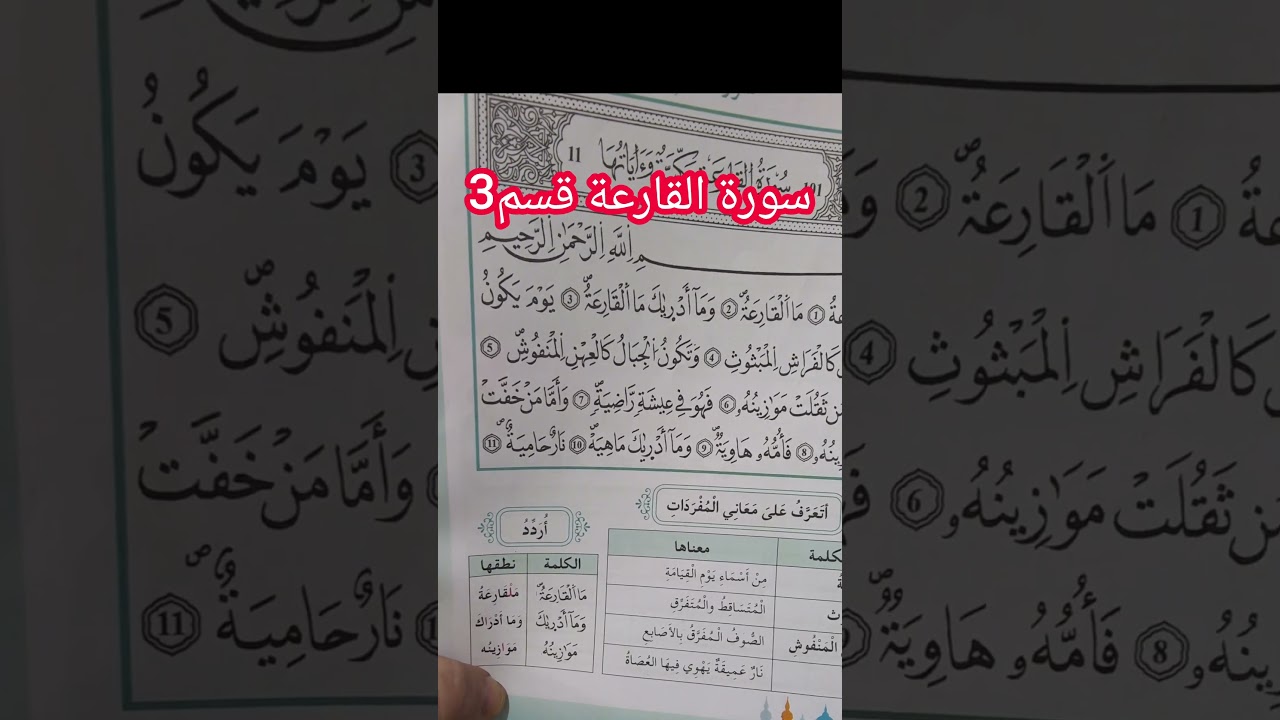 سورة القارعة قسم3
11
اِللَّهِ اِلرَّحْمَٰنِ اِلرَّحِيمِ
1 مَا اَلْقَارِعَةُۖ 2 وَمَآ أَدْر۪يٰكَ مَا اَلْقَارِعَةُۖ 3 يَوْمَ يَكُونُ
كَالْفَرَاشِ اِلْمَبْثُوثِ 4 وَتَكُونُ اُلْجِبَالُ كَالْعِهْنِ اِلْمَنفُوشِۖ 5
ثَقُلَتْ مَوَٰزِينُهُۥ 6 فَهُوَ فِے عِيشَةٖ رَّاضِيَةٖۖ 7 وَأَمَّا مَنْ خَفَّتْ
8 فَأُمُّهُۥ هَاوِيَةٞۖ 9 وَمَآ أَدْر۪يٰكَ مَا هِيَهْۖ 10 نَارٌ حَامِيَةٌۖ 11
أَتَعَرَّفُ عَلَى مَعَانِي الْمُفْرَدَاتِ
معناها
مِنْ أَسْمَاءِ يَوْمِ الْقِيَامَةِ
الْمُتَسَاقِطُ والْمُتَفَرِّقِ
الْمَنْفُوشِ الصُّوفُ الْمُفَرَّقُ بالأَصَابِعِ
نَارٌ عَمِيقَةٌ يَهْوِي فِيهَا العُصَاةُ
أُرَدِّدُ
الكلمة نطقها
مَا اَلْقَارِعَةُۖ مَلْقَارِعَةُ
وَمَآ أَدْر۪يٰكَ وَمَا أَدْرَاكَ
مَوَٰزِينُهُ مَوَازِينُه